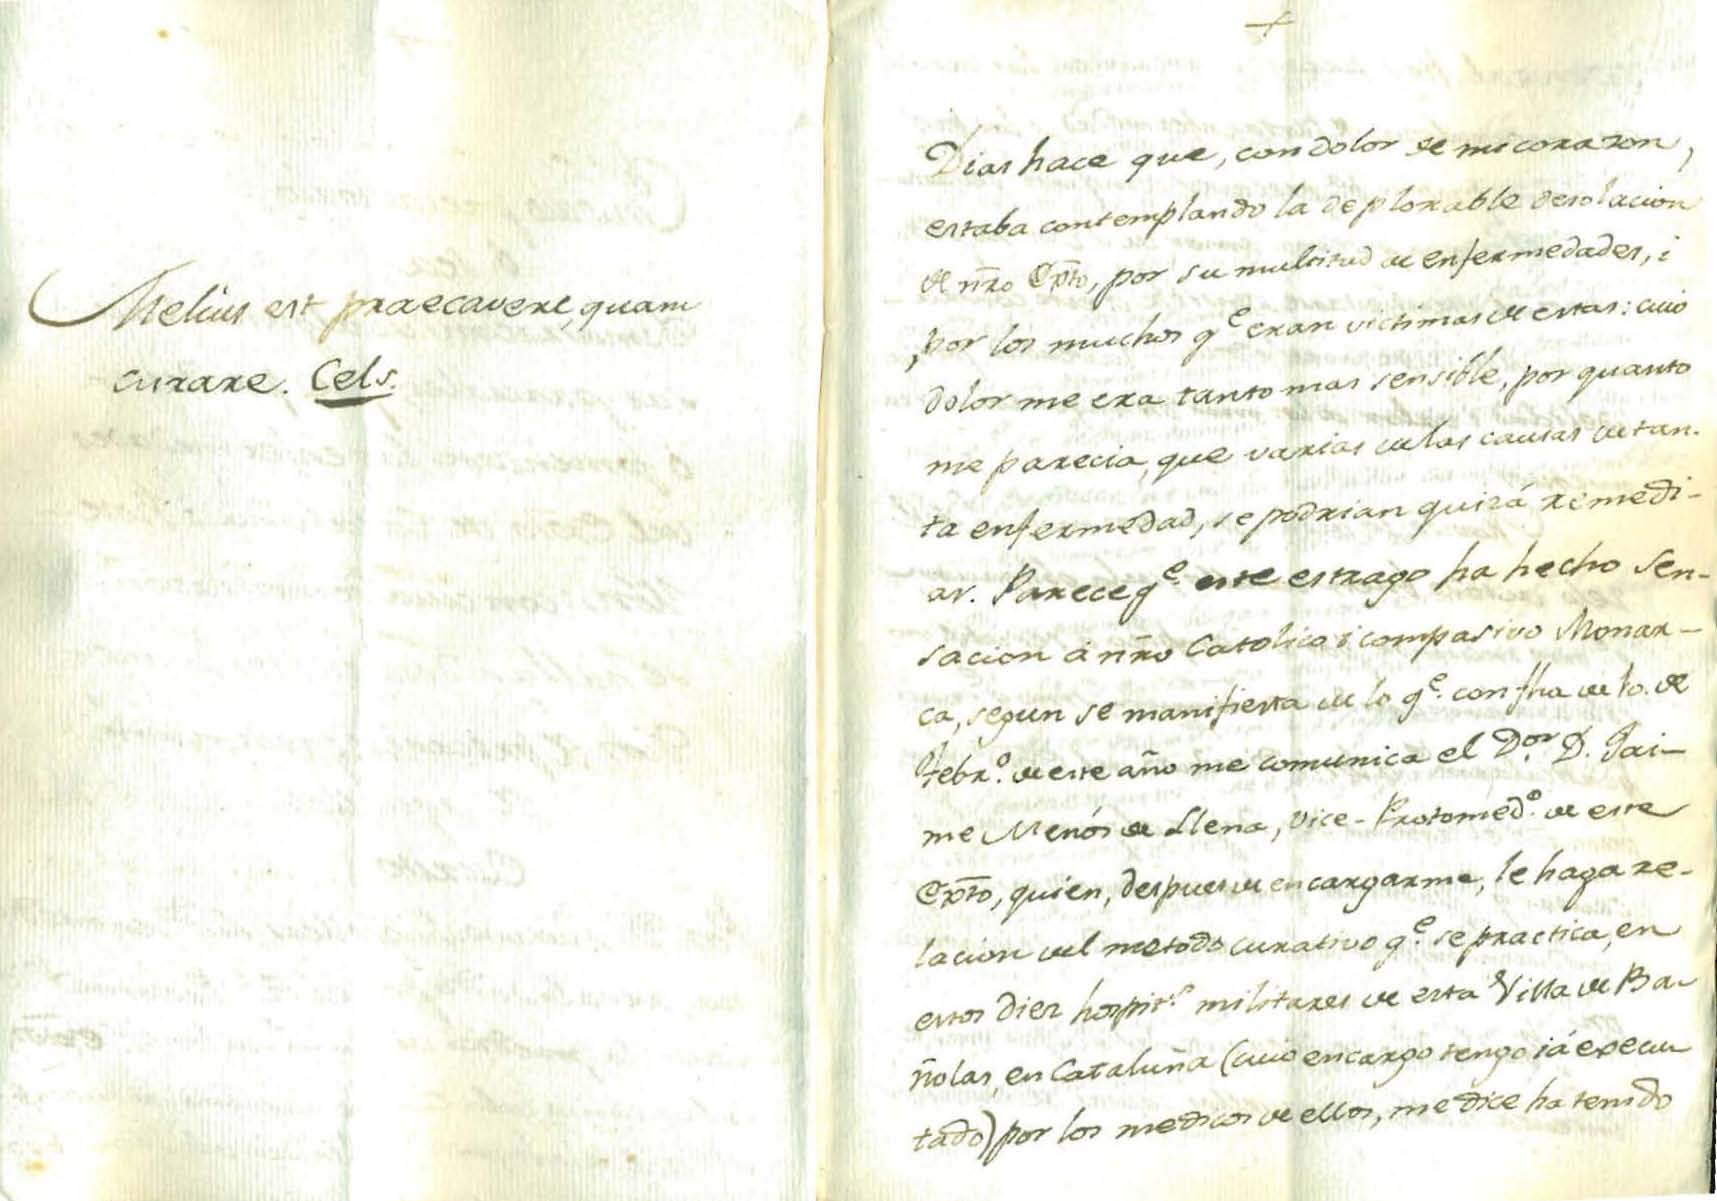 Melius est praecavere, quam
curare. Cels.
Dias hace que, con dolor de mi corazon,
estaba contemplando la deplorable desolacion
de nr̃o Exto, por su multitud de enfermedades, i
por los muchos qe eran victimas de estas: cuio
dolor me era tanto mas sensible, por quanto
me parecia, que varias de las causas de tan-
ta enfermedad, se podrian quizá remedi-
ar. Parece qe. este estrago ha hecho sen-
sacion á nr̃o Catolico i compasivo Monar-
ca, segun se manifiesta de lo qe. con fha de 10. de
Febro. de este año me comunica el Dor. D. Jai-
me Menós de Llena, Vice-Protomedo. de este
Exto, quien, despues de encargarme, le haga re-
lacion del metodo curativo qe. se practica, en
estos diez hospits. militares de esta Villa de Ba-
ñolas, en Cataluña (cuio encargo tengo iá execu
tado) por los medicos de ellos, me dice ha tenido